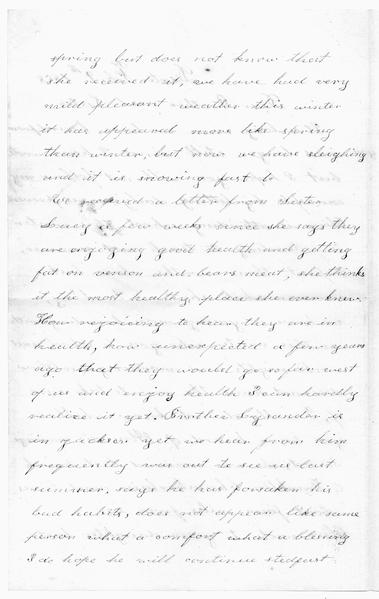 spring but does not know that
she received it, we have had very
mild pleasant weather this winter
it has appeared more like spring
than winter, but now we have sleighing
and it is snowing fast to
We received a letter from Sister
Lucy a few weeks since she says they
are enjoying good health and getting
fat on venson and bears meat, she thinks
it the most healthy place she ever knew.
How rejoicing to hear they are in
health, how unexpected a few years
ago that they would go so far west
of us and enjoy health I can hardly
realize it yet. Brother Lysander is
in Jackson yet we hear from him
frequently was out to see us last
summer, says he has forsaken his
bad habits, does not appear like same
person what a comfort what a blessing
I do hope he will continue stedfast.